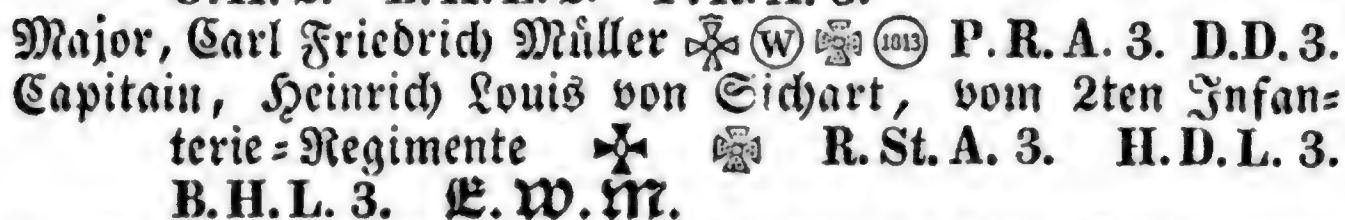 Major, Carl Friedrich Müller ✠ Ⓦ ✠ (1813) P.R.A. 3. D.D. 3.
Capitain, Heinrich Louis von Sichart, vom 2ten Infan=
terie=Regimente ✠ ✠ R. St. A. 3. H. D. L. 3.
B. H. L. 3. E. W. M.